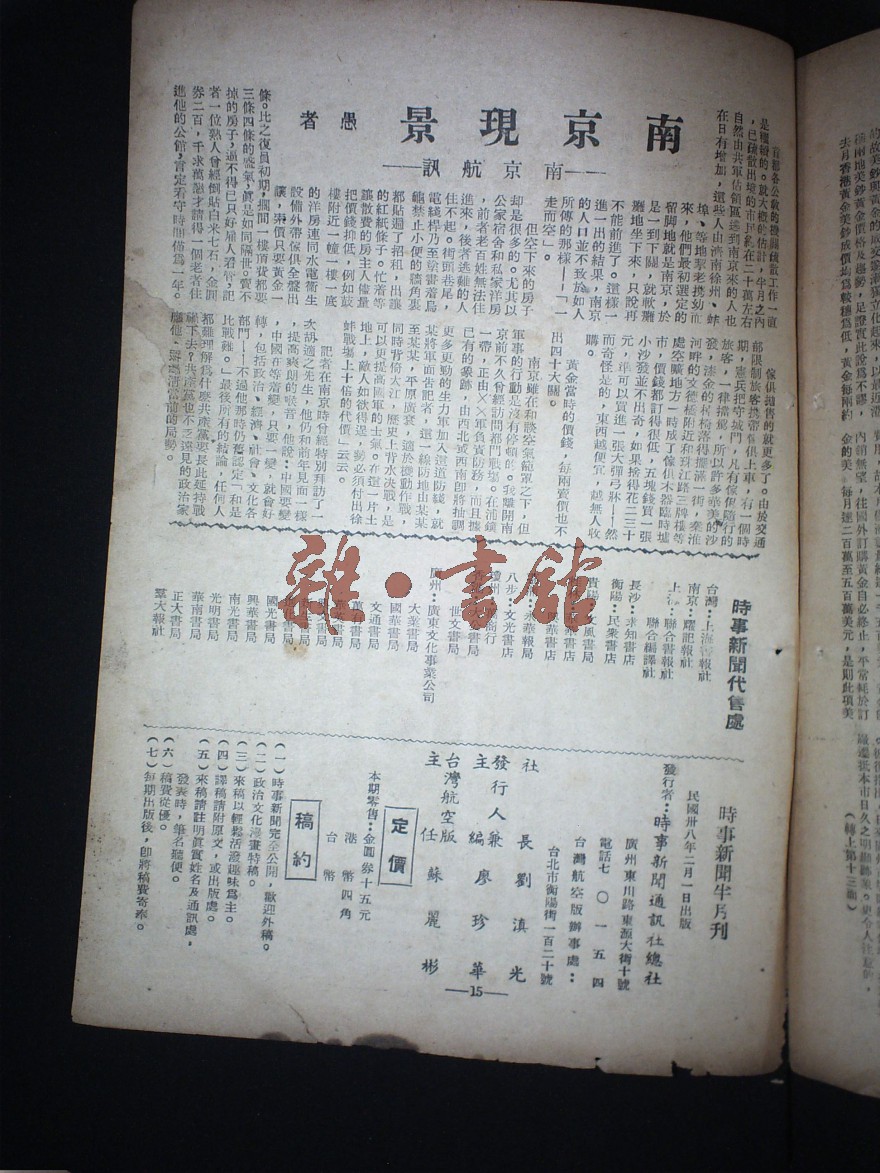 南京現景
愚者
——南京航訊——
首都各公教的機關疏散工作一直
是繼續的。就大概的估計，半月之內
，已疏散出境的市民約在二十萬左右
自然由共軍佔領區逃到南京來的人也
在日有增加，這些人由濟南徐州、蚌
埠、等地挈老攜幼而
來，他們最初選定的
留脚地就是南京，於
是一到下關，就軟癱
癱地坐下來，只說再
不能前進了。這樣一
進一出的結果，南京
的人口並不致於如人
所傳的那樣——「一
走而空」。
但空下來的房子
却是很多的。尤其以
公家宿舍和私家洋房
，前者老百姓無法住
進來，後者逃難的人
住不起。街頭巷尾，
電綫桿乃至禁書着爲
龜禁止小便的牆角裏
都貼遍了招租，出讓
的紅紙條子。忙着等
讓散費的房主人儘量
把價錢抑低，例如鼓
樓附近一幢一樓一底
的洋房連同水電衛生
設備外帶傢俱全盤出
讓，索價只要黃金一
條。比之復員初期，擱間一樓頂費都要
三條四條的盛氣，眞是如同隔世。賣不
掉的房子，逼不得已只好雇人看管，記
者一位熟人曾經倒貼白米七石，金圓
券二百，千求萬懇才請得一個老者住
進他的公館，肯定看守時間估爲一年。
傢俱拋售的就更多了。由於交通
部限制旅客携帶傢俱上車，有一個時
期，憲兵把守城門，凡有傢俱隨行的
旅客，一律擋駕，所以許多華美的沙
發，漆金的桌椅落得擺滿一街，秦淮
河畔的文德橋附近和珠江路三牌樓等
處空曠地方一時成了傢俱木器臨時墟
市，價錢都訂得很低，五塊錢買一張
小沙發並不出奇，如果捨得花二三十
元，準可以買進一張大彈弓牀——然
而奇怪是的，東西越便宜，越無人收
購。
黃金當時的價錢，每兩賣價也不
出四十大關。
南京雖在和談空氣籠罩之下，但
軍事的行動是沒有停頓的。我離開南
京前不久曾經訪問都門戰場。在浦鎮
一帶，正由××軍負責防務，而且據
已有的象跡，由西北或西南即將抽調
更多更勁的生力軍加入這道防綫，就
某將軍面告記者，這一線防地由某某
至某某，平原廣衰，適於機動作戰，
同時背倚大江，歷史上背水決戰，是
可以更提高國軍的士氣。在這一片土
地上，敵人如欲得逞，勢必須付出徐
蚌戰場上十倍的代價」云云。
記者在南京時曾經特別拜訪了一
次胡適之先生，他仍和前年見面一樣
，提高爽朗的喉音，他說：中國要變
，中國在等着變，只要一變，就會好
轉，包括政治、經濟、社會、文化各
部門——不過他那時仍舊認定「和是
比戰難。」最後所有的結論，任何人
都難理解爲什麼共產黨要長此延持戰
時事新聞代售處
台灣：上海書報社
南京：曙記報社
上海：聯合書報社
聯合編譯社
長沙：求知書店
衡陽：民衆書店
八步：文光書店
世文書局
廣州：廣東文化事業公司
大業書局
國華書局
文通書局
萬有書局
國光書局
興華書局
南光書局
光明書局
華南書局
正大書局
羣大報社
時事新聞半月刊
民國卅八年二月一日出版
發行者：時事新聞通訊社總社
廣州東川路東源大街十號
電話七〇一五四
台灣航空版辦事處：
台北市衡陽街一百二十號
社長劉滇光
發行人兼主編廖珍華
台灣航空版主任蘇麗彬
定價
本期零售：金圓券十五元
港幣四角
台幣
稿約
（一）時事新聞完全公開，歡迎外稿。
（二）政治文化漫畫特稿。
（三）來稿以輕鬆活潑趣味爲主。
（四）譯稿請附原文，或出版處。
（五）來稿請註明眞實姓名及通訊處，
發表時，筆名聽便。
（六）稿費從優。
（七）每期出版後，即將稿費寄奉。
—15—
（轉上第十三面）
雜·書館